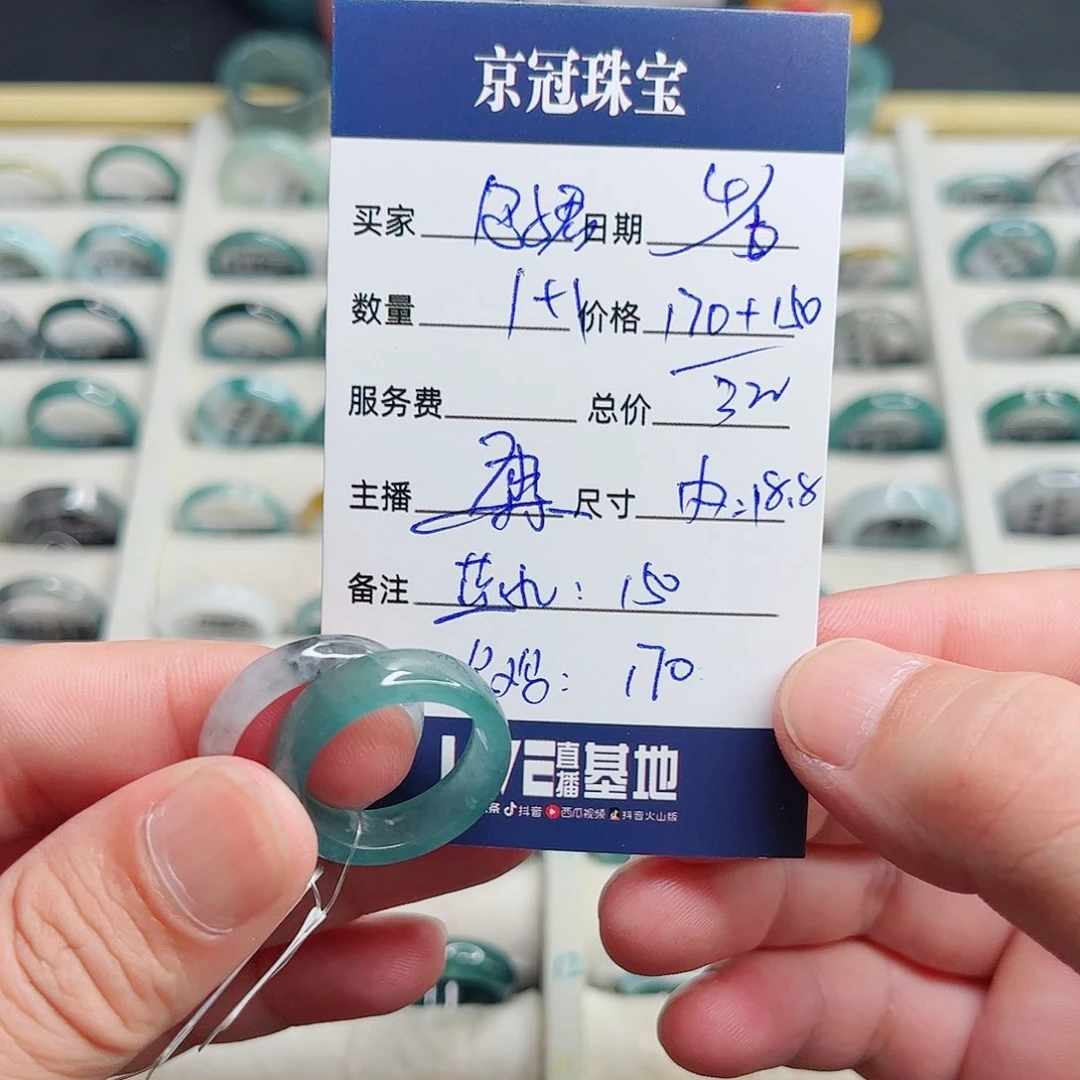 京冠珠宝
买家 日期 4/6
数量 1+1 价格 170+150
服务费 总价 320
主播 尺寸 内:18.8
备注 蓝水: 150
鸡: 170
直播基地
条 抖音 西瓜视频 抖音火山版